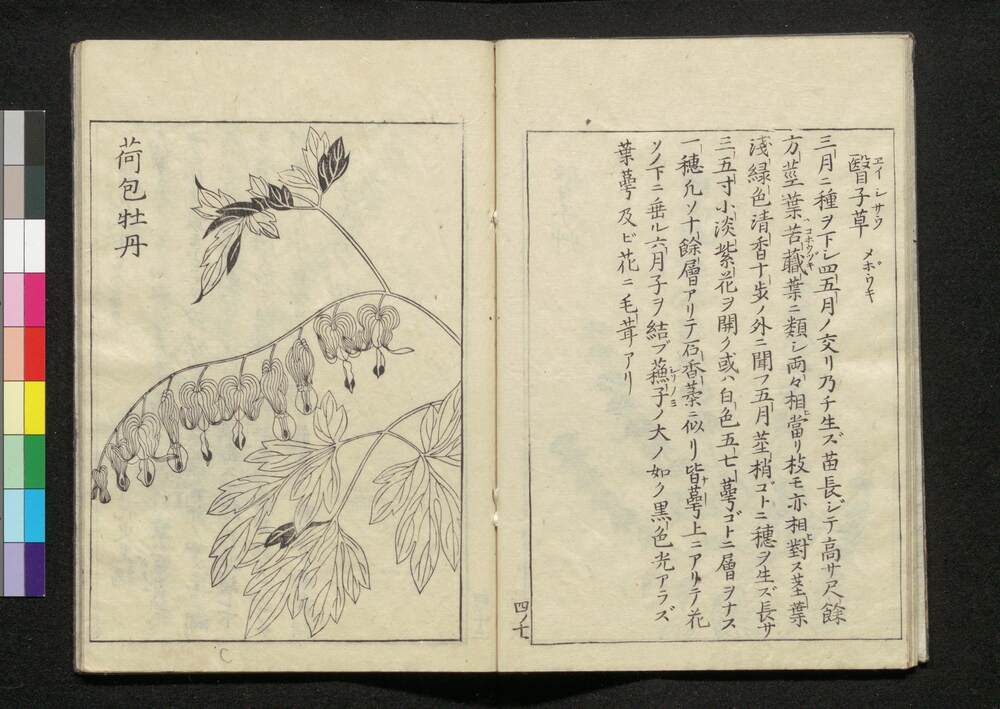 翳子草
エイシサウ
メボウキ
三月ニ種ヲ下シ四五月ノ交リ乃チ生ズ苗長ジテ高サ尺餘
方莖葉苦蘵葉ニ類シ両々相當リ枝モ亦相對ス莖葉
コホウヅキ
淺緑色清香十歩ノ外ニ聞フ五月莖梢ゴトニ穗ヲ生ズ長サ
三五寸小淡紫花ヲ開ク或ハ白色五七萼ゴトニ層ヲナス
一穗凡ソ十餘層アリテ石香葇ニ似リ皆萼上ニアリテ花
ソノ下ニ垂ル六月子ヲ結ブ蘓子ノ大ノ如ク黒色光アラズ
葉萼及ビ花ニ毛茸アリ
四ノ十
荷包牡丹